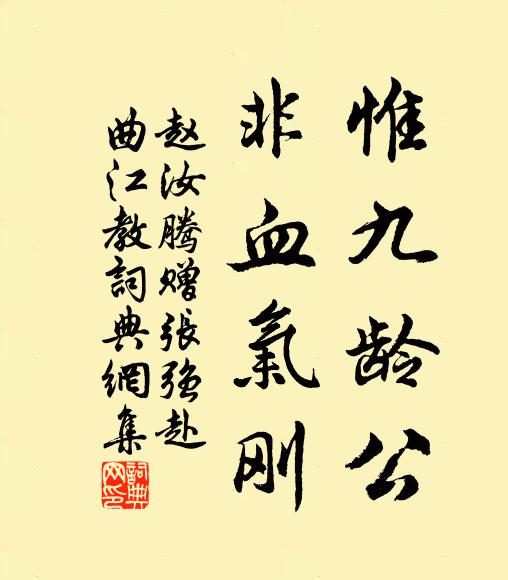 惟九龄公
非血氣刚
赵汝腾赠張强赴
曲江教詞典網集
詞典网印